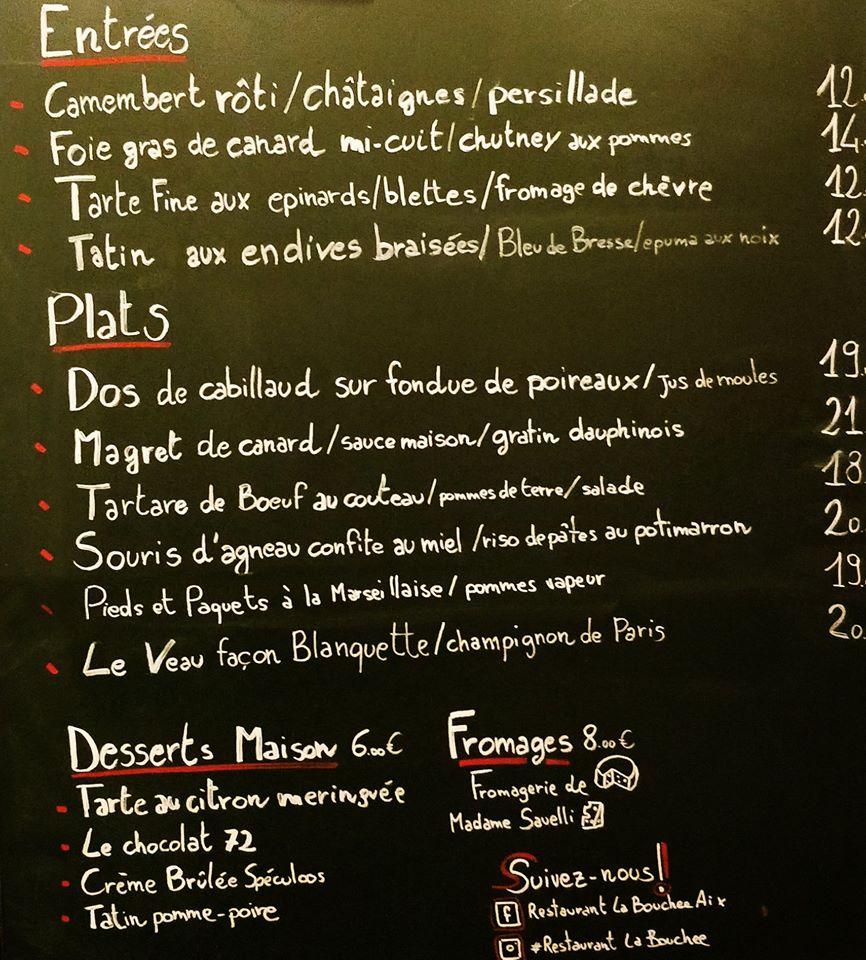 Entrées
Camembert rôti/châtaignes/persillade 12.
Foie gras de canard mi-cuit/chutney aux pommes 14.
Tarte Fine aux epinards/blettes/fromage de chèvre 12
Tatin aux endives braisées/Bleu de Bresse/epuma aux noix 12.
Plats
Dos de cabillaud sur fondue de poireaux/jus de moules 19.
Magret de canard/sauce maison/gratin dauphinois 21
Tartare de Boeuf au couteau/pommes de terre/salade 18
Souris d'agneau confite au miel/riso de pâtes au potimarron 20
Pieds et Paquets à la Marseillaise/pommes vapeur 19.
Le Veau façon Blanquette/champignon de Paris 20
Desserts Maison 6.00€
Tarte au citron meringuée
Le chocolat 72
Crème Brûlée Spéculoos
Tatin pomme-poire
Fromages 8.00€
Fromagerie de
Madame Savelli
Suivez-nous!
f Restaurant La Bouchee Aix
#Restaurant La Bouchee